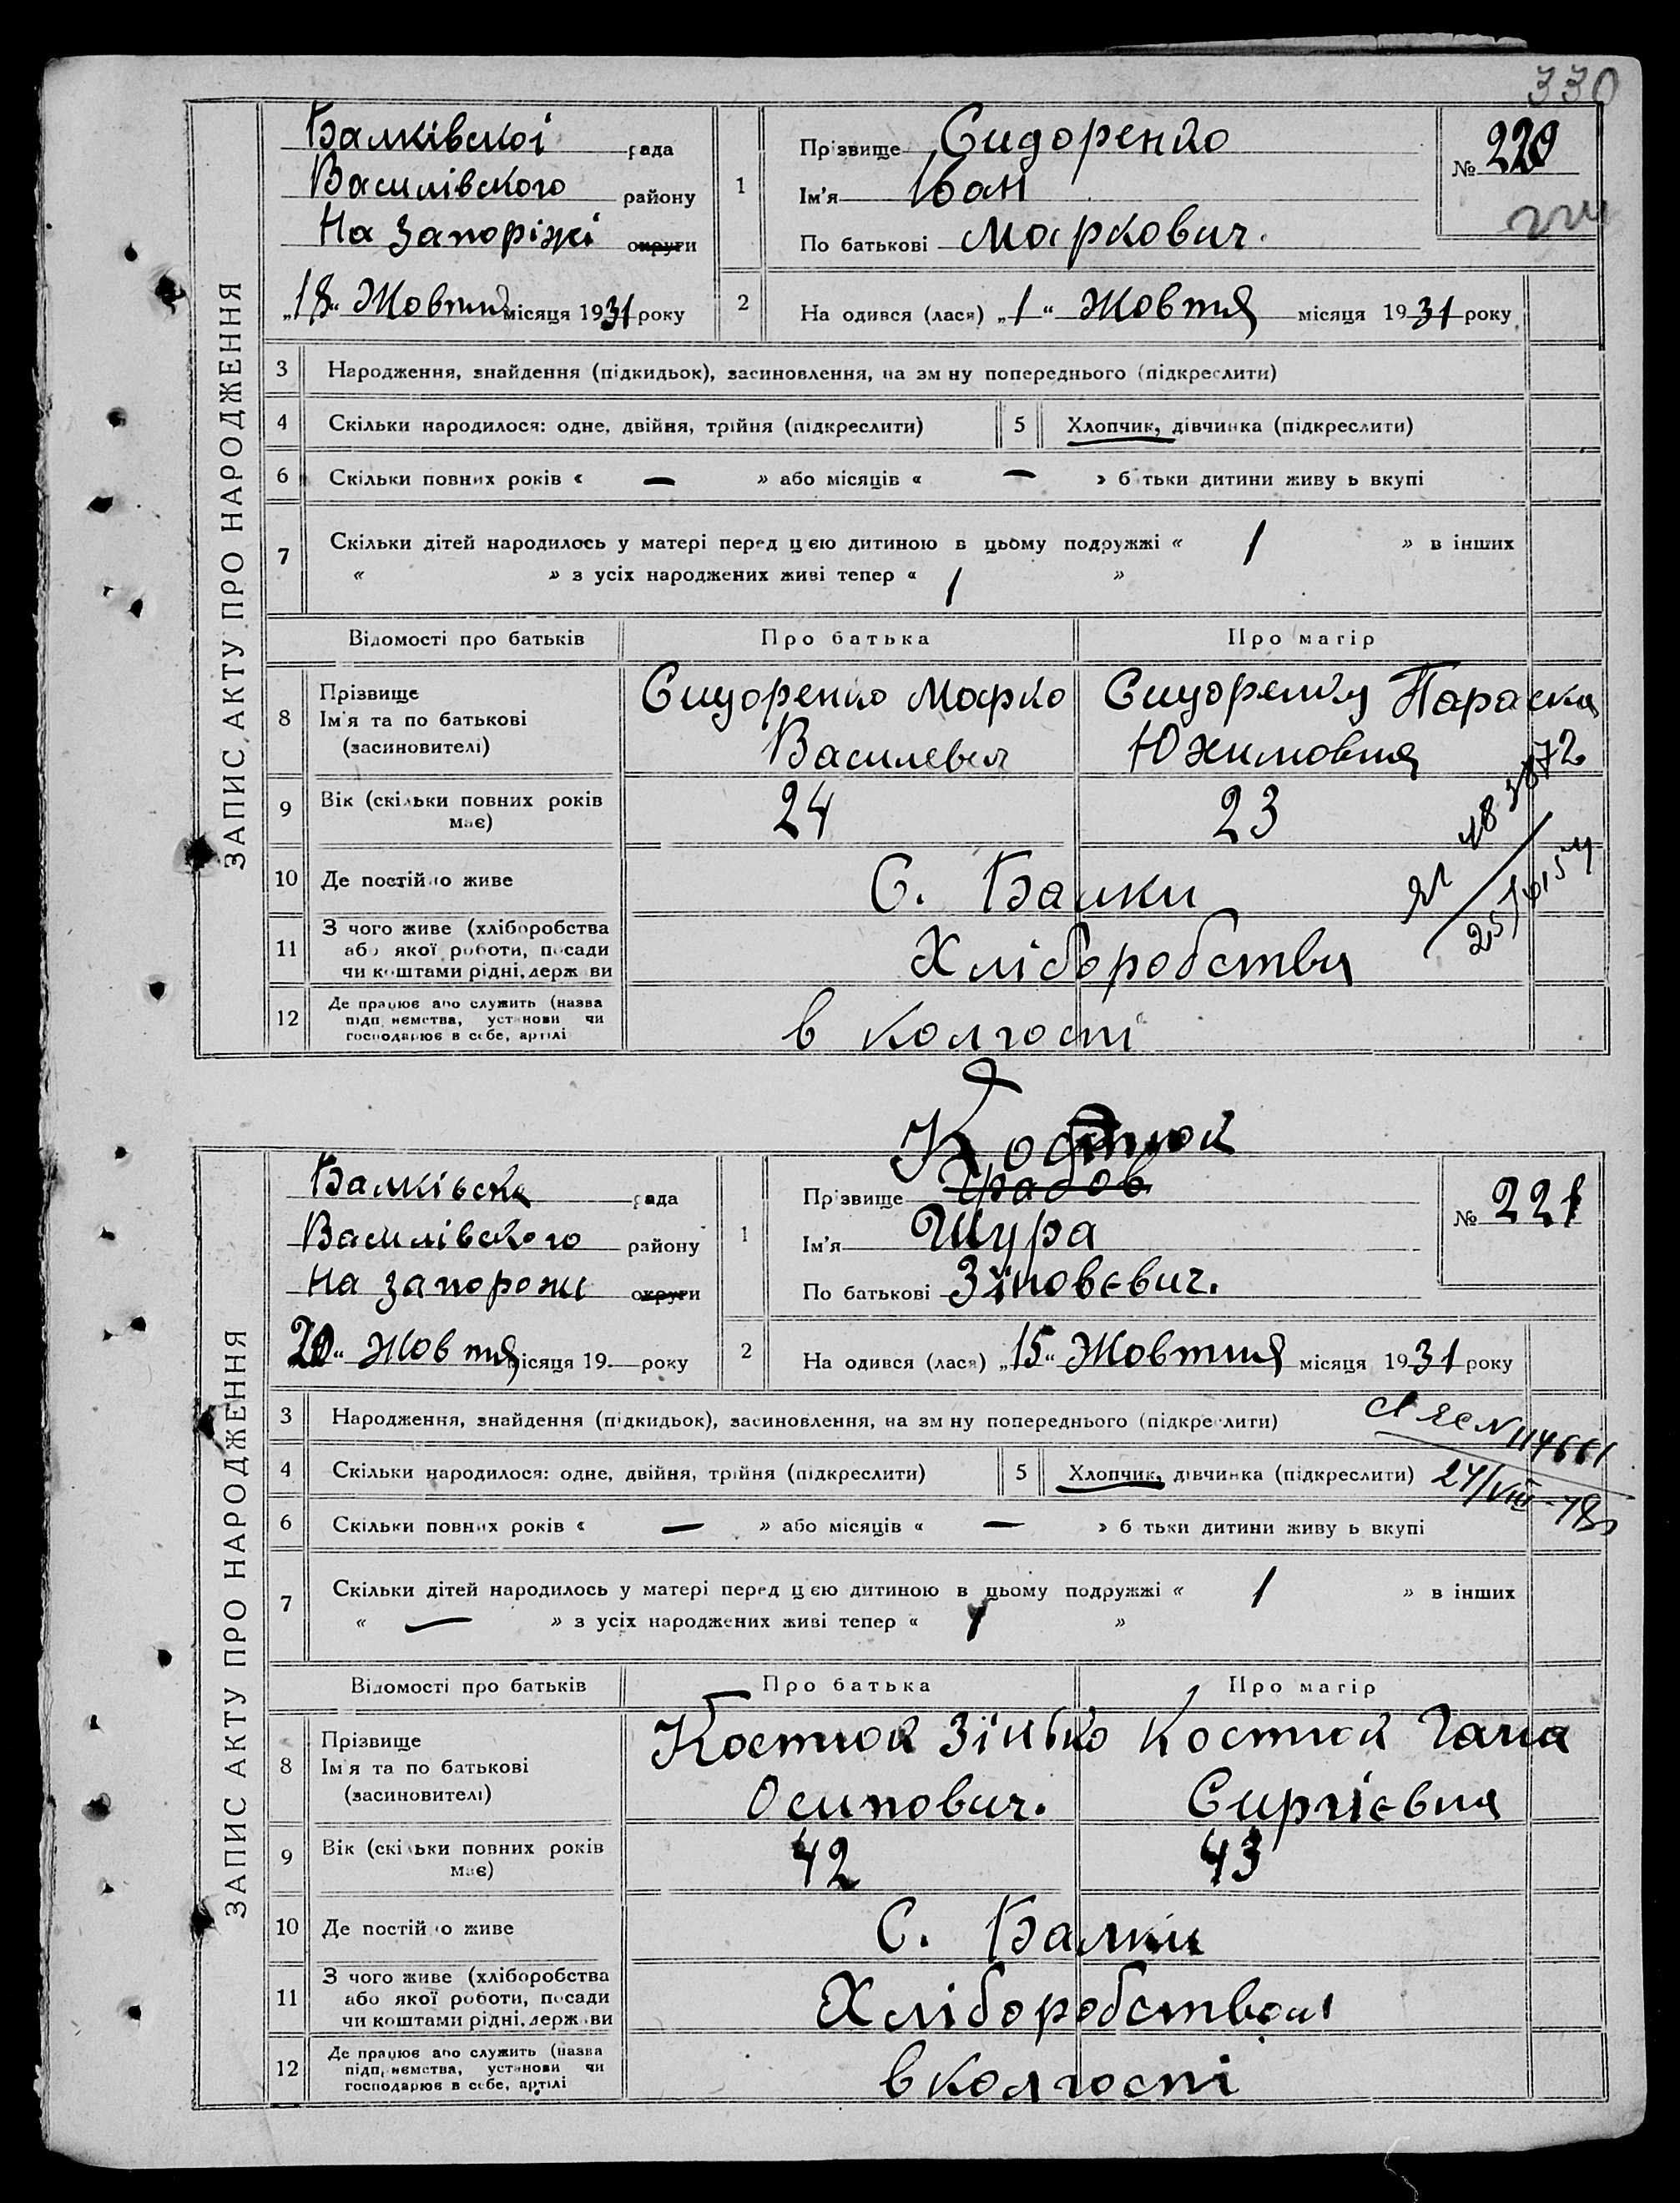 330
ЗАПИС АКТУ ПРО НАРОДЖЕННЯ
Балківської рада
Василівского району
На Запоріжі округи
„18“ Жовтня місяця 1931 року
1 Прізвище Сидоренко
Ім'я Іван
По батькові Маркович.
№ 220
2 На одився (лася) „1“ Жовтня місяця 1931 року
3 Народження, знайдення (підкидьок), засиновлення, на зм ну попереднього (підкреслити)
4 Скільки народилося: одне, двійня, трійня (підкреслити) 5 Хлопчик, дівчинка (підкреслити)
6 Скільки повних років « — » або місяців « — » б тьки дитини живу ь вкупі
7 Скільки дітей народилось у матері перед цею дитиною в цьому подружжі « 1 » в інших
« » з усіх народжених живі тепер « 1 »
Відомості про батьків Про батька Про матір
8 Прізвище
Ім'я та по батькові
(засиновителі)
Сидоренко Марко
Василевич
Сидоренко Параска
Юхимовна
9 Вік (скільки повних років
має)
24 23
10 Де постійно живе С. Балки
11 З чого живе (хліборобства
або якої роботи, посади
чи коштами рідні, держ ви
Хліборобства
12 Де працює або служить (назва
підп иємства, установи чи
господарює в себе, артілі
в колгоспі
ЗАПИС АКТУ ПРО НАРОДЖЕННЯ
Костюк
Балківска рада
Василівского району
На Запорожи округи
20“ Жовтня місяця 19 року
1 Прізвище Грабов
Ім'я Шура
По батькові Зіновєвич.
№ 221
2 На одився (лася) „15“ Жовтня місяця 1931 року
3 Народження, знайдення (підкидьок), засиновлення, на зм ну попереднього (підкреслити)
N 114661
24/VIII-78
4 Скільки народилося: одне, двійня, трійня (підкреслити) 5 Хлопчик, дівчинка (підкреслити)
6 Скільки повних років « — » або місяців « — » б тьки дитини живу ь вкупі
7 Скільки дітей народилось у матері перед цею дитиною в цьому подружжі « 1 » в інших
« — » з усіх народжених живі тепер « 1 »
Відомості про батьків Про батька Про матір
8 Прізвище
Ім'я та по батькові
(засиновителі)
Костюк Зінько
Осипович.
Костюк Гана
Сиргієвна
9 Вік (скільки повних років
має)
42 43
10 Де постій о живе С. Балки
11 З чого живе (хліборобства
або якої роботи, посади
чи коштами рідні, держ ви
Хліборобством
12 Де працює або служить (назва
підп иємства, установи чи
господарює в себе, артілі
в колгоспі